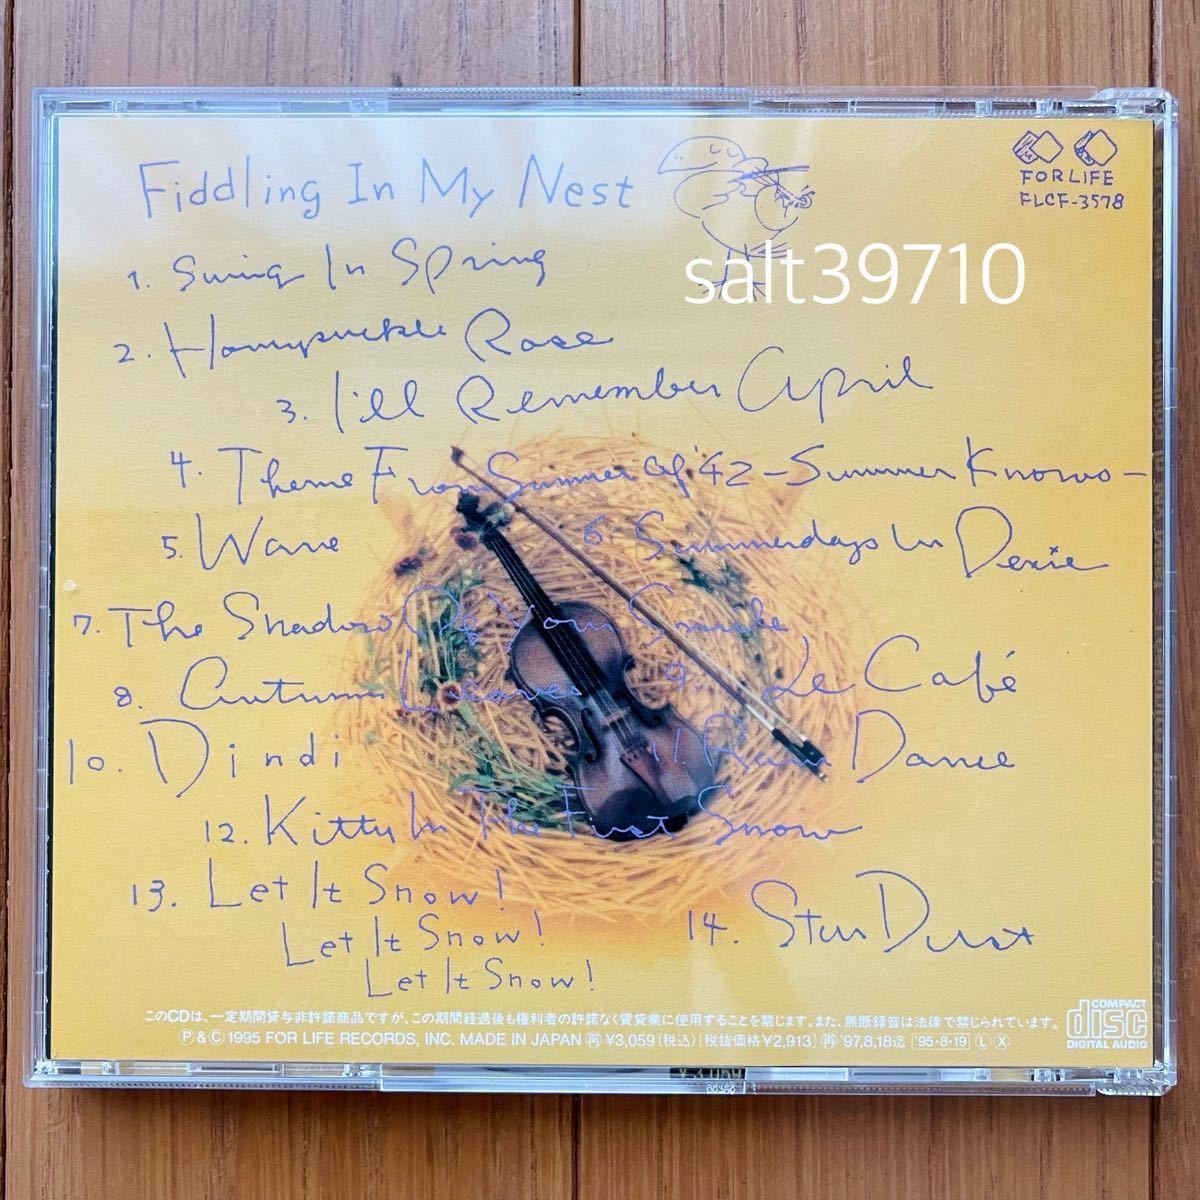 Fiddling In My Nest
FOR LIFE
FLCF-3578
salt39710
1. Swing In Spring
2. Honeysuckle Rose
3. I'll Remember April
4. Theme From Summer of '42 -Summer Knows-
5. Wave
6. Summerdays In Dexie
7. The Shadow Of Your Smile
8. Autumn Leaves
9. Le Café
10. Dindi
11. Rain Dance
12. Kitty In The First Snow
13. Let It Snow!
Let It Snow!
Let It Snow!
14. Star Dust
このCDは、一定期間貸与非許諾商品ですが、この期間経過後も権利者の許諾なく賃貸業に使用することを禁じます。また、無断録音は法律で禁じられています。
Ⓟ & Ⓒ 1995 FOR LIFE RECORDS, INC. MADE IN JAPAN ㊢ ¥3,059 (税込) [税抜価格¥2,913] ㊢ '97.8.18迄 '95・8・19 Ⓛ Ⓧ
COMPACT
disc
DIGITAL AUDIO
¥3,059